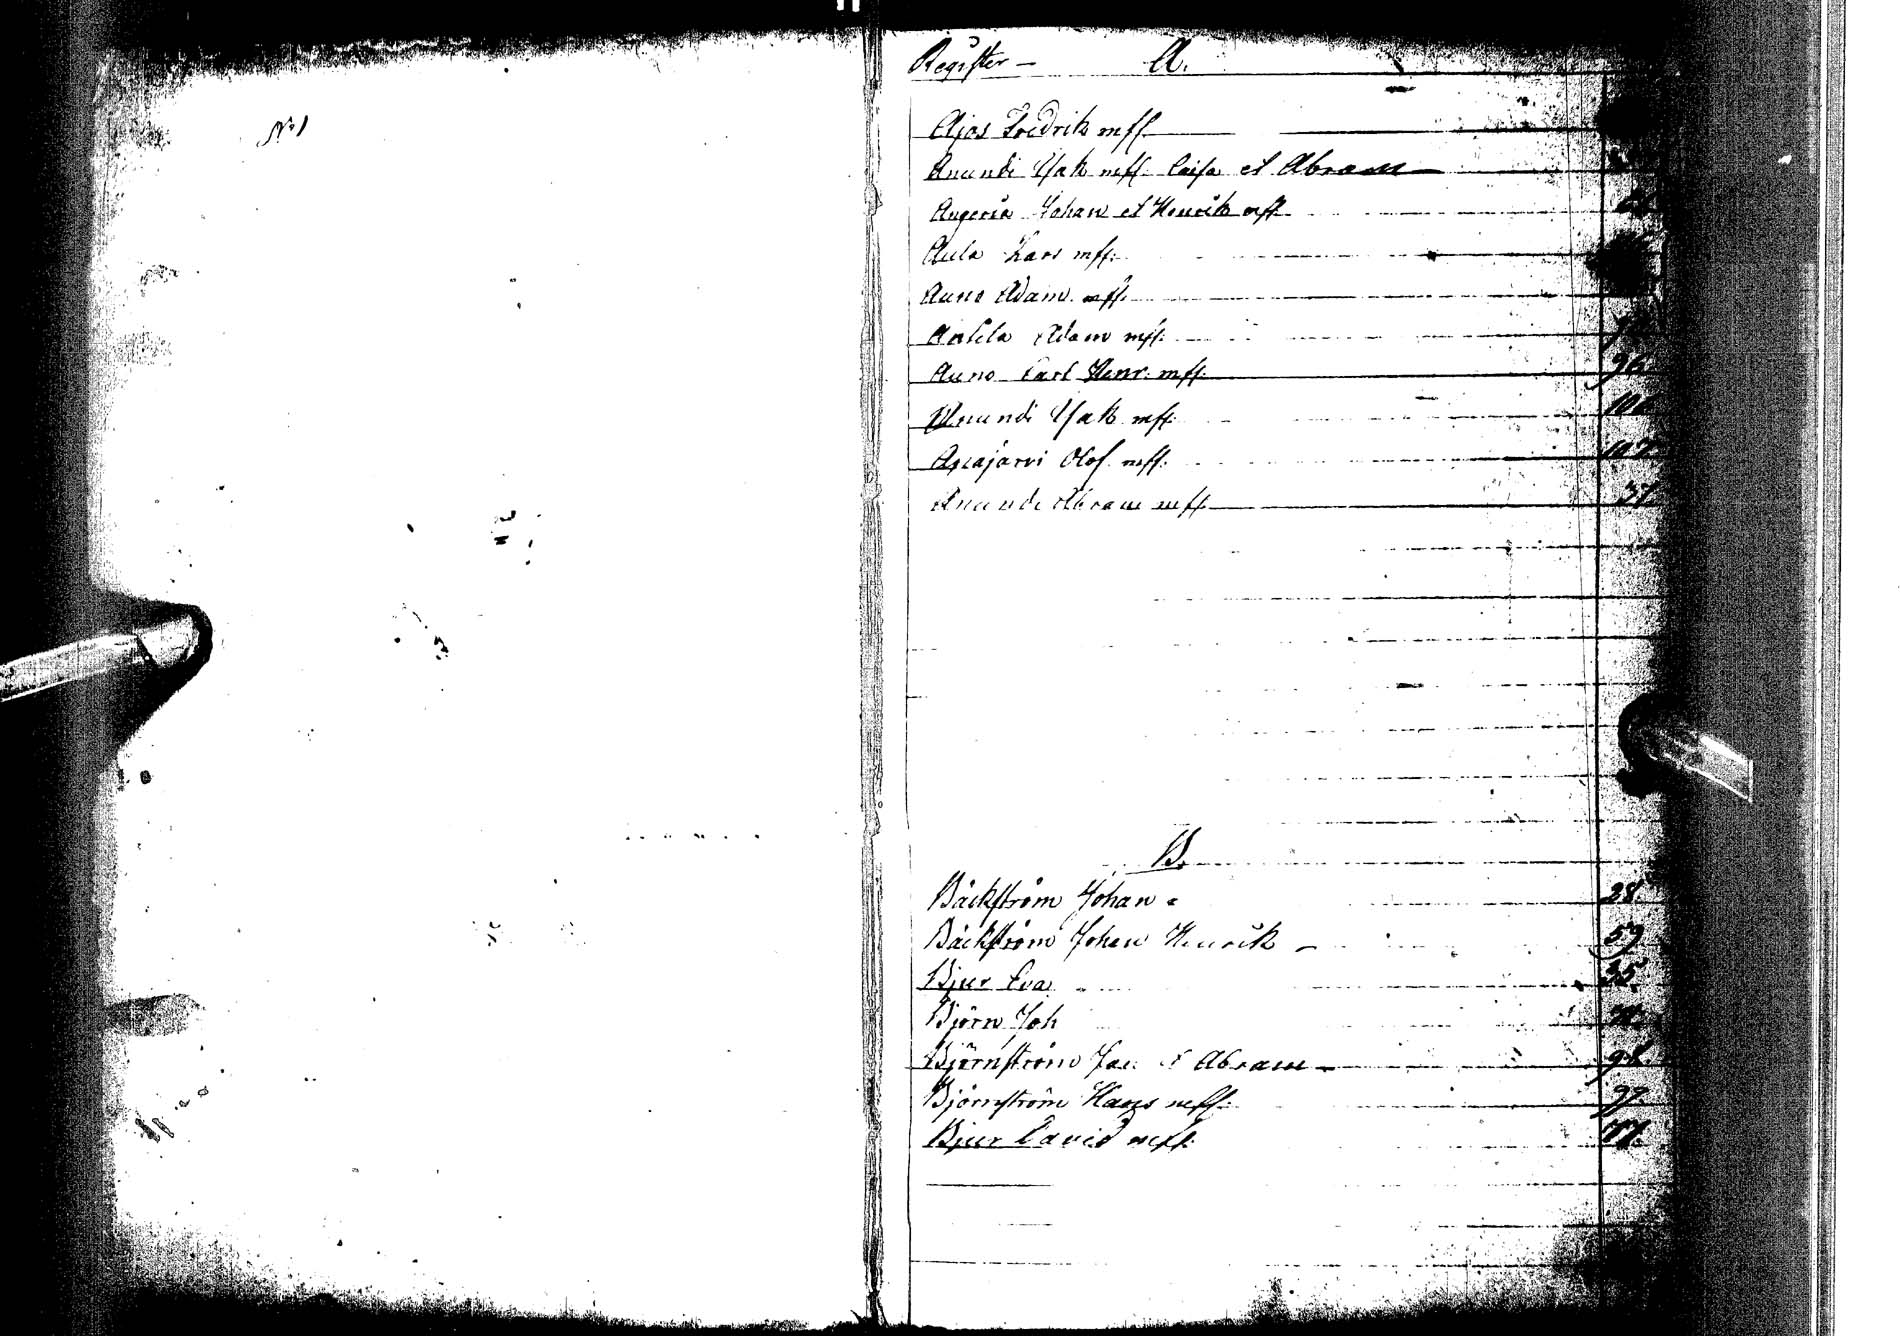 N:o 1
Register — A.
Ajos Fredrik mfl.
Anundi Isak mfl. Caisa et Abram —
Angeria Johan et Henrik mfl.
Aula Lars mfl.
Auno Adam mfl.
Anttila Adam mfl.
Auno Carl Henr. mfl. 96.
Anundi Isak mfl.
Apiajärvi Olof mfl. 107
Anundi Abram mfl. 37.
B.
Bäckström Johan 28.
Bäckström Johan Henrik — 59
Bjur Eva 35.
Björn Joh
Björnström Jac. & Abram — 98
Björnström Hans mfl. 37
Bjur David mfl. 77.